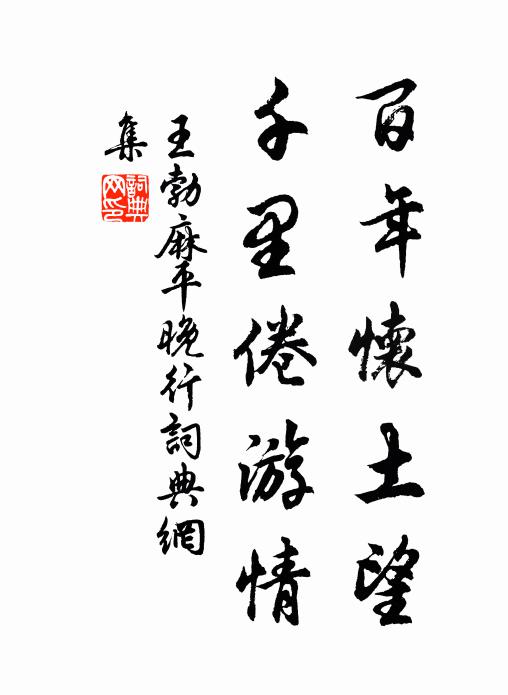 百年懷土望
千里倦游情
王勃麻平晚行詞典網
集
詞典
网印